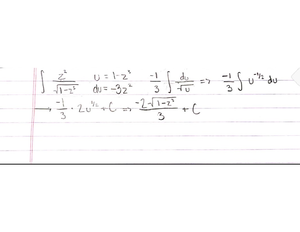 ∫ z²/√(1-z³) u = 1-z³ du = -3z² -1/3 ∫ du/√u => -1/3 ∫ u^(-1/2) du
→ -1/3 · 2u^(1/2) + C => -2√(1-z³)/3 + C